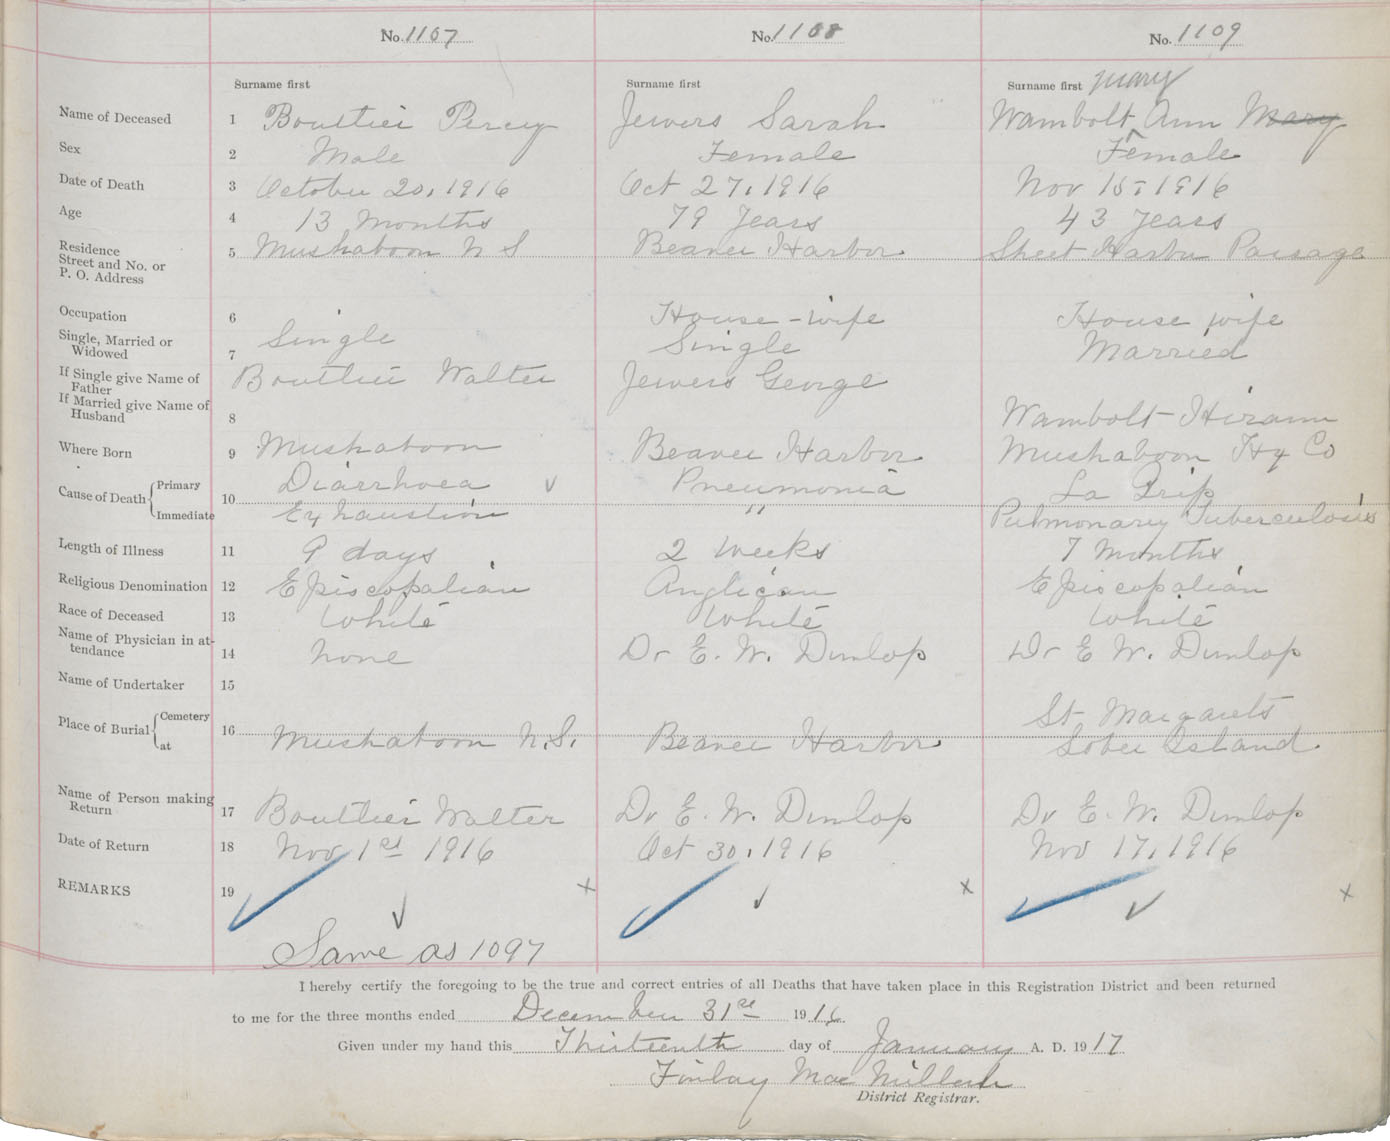 No. 1107 No. 1108 No. 1109
Surname first Surname first Surname first Mary
Name of Deceased 1 Boutlier Percy Jewers Sarah Wambolt Ann Mary
Sex 2 Male Female Female
Date of Death 3 October 20, 1916 Oct 27, 1916 Nov 15, 1916
Age 4 13 Months 79 Years 43 Years
Residence Street and No. or P. O. Address 5 Mushaboom N S Beaver Harbor Sheet Harbor Passage
Occupation 6 House-wife House wife
Single, Married or Widowed 7 Single Single Married
If Single give Name of Father Boutlier Walter Jewers George
If Married give Name of Husband 8 Wambolt-Hiram
Where Born 9 Mushaboom Beaver Harbor Mushaboom Hx Co
Cause of Death Primary 10 Diarrhoea Pneumonia La Grip
Immediate Exhaustion " Pulmonary Tuberculosis
Length of Illness 11 9 days 2 Weeks 7 Months
Religious Denomination 12 Episcopalian Anglican Episcopalian
Race of Deceased 13 White White White
Name of Physician in attendance 14 None Dr E. W. Dunlop Dr E W. Dunlop
Name of Undertaker 15
Place of Burial Cemetery 16 St Margarets
at Mushaboom N.S. Beaver Harbor Sober Island
Name of Person making Return 17 Boutlier Walter Dr E. W. Dunlop Dr E. W. Dunlop
Date of Return 18 Nov 1st 1916 Oct 30, 1916 Nov 17, 1916
REMARKS 19 x x x
Same as 1097
I hereby certify the foregoing to be the true and correct entries of all Deaths that have taken place in this Registration District and been returned
to me for the three months ended December 31st 1916
Given under my hand this Thirteenth day of January A. D. 1917
Finlay
District Registrar.